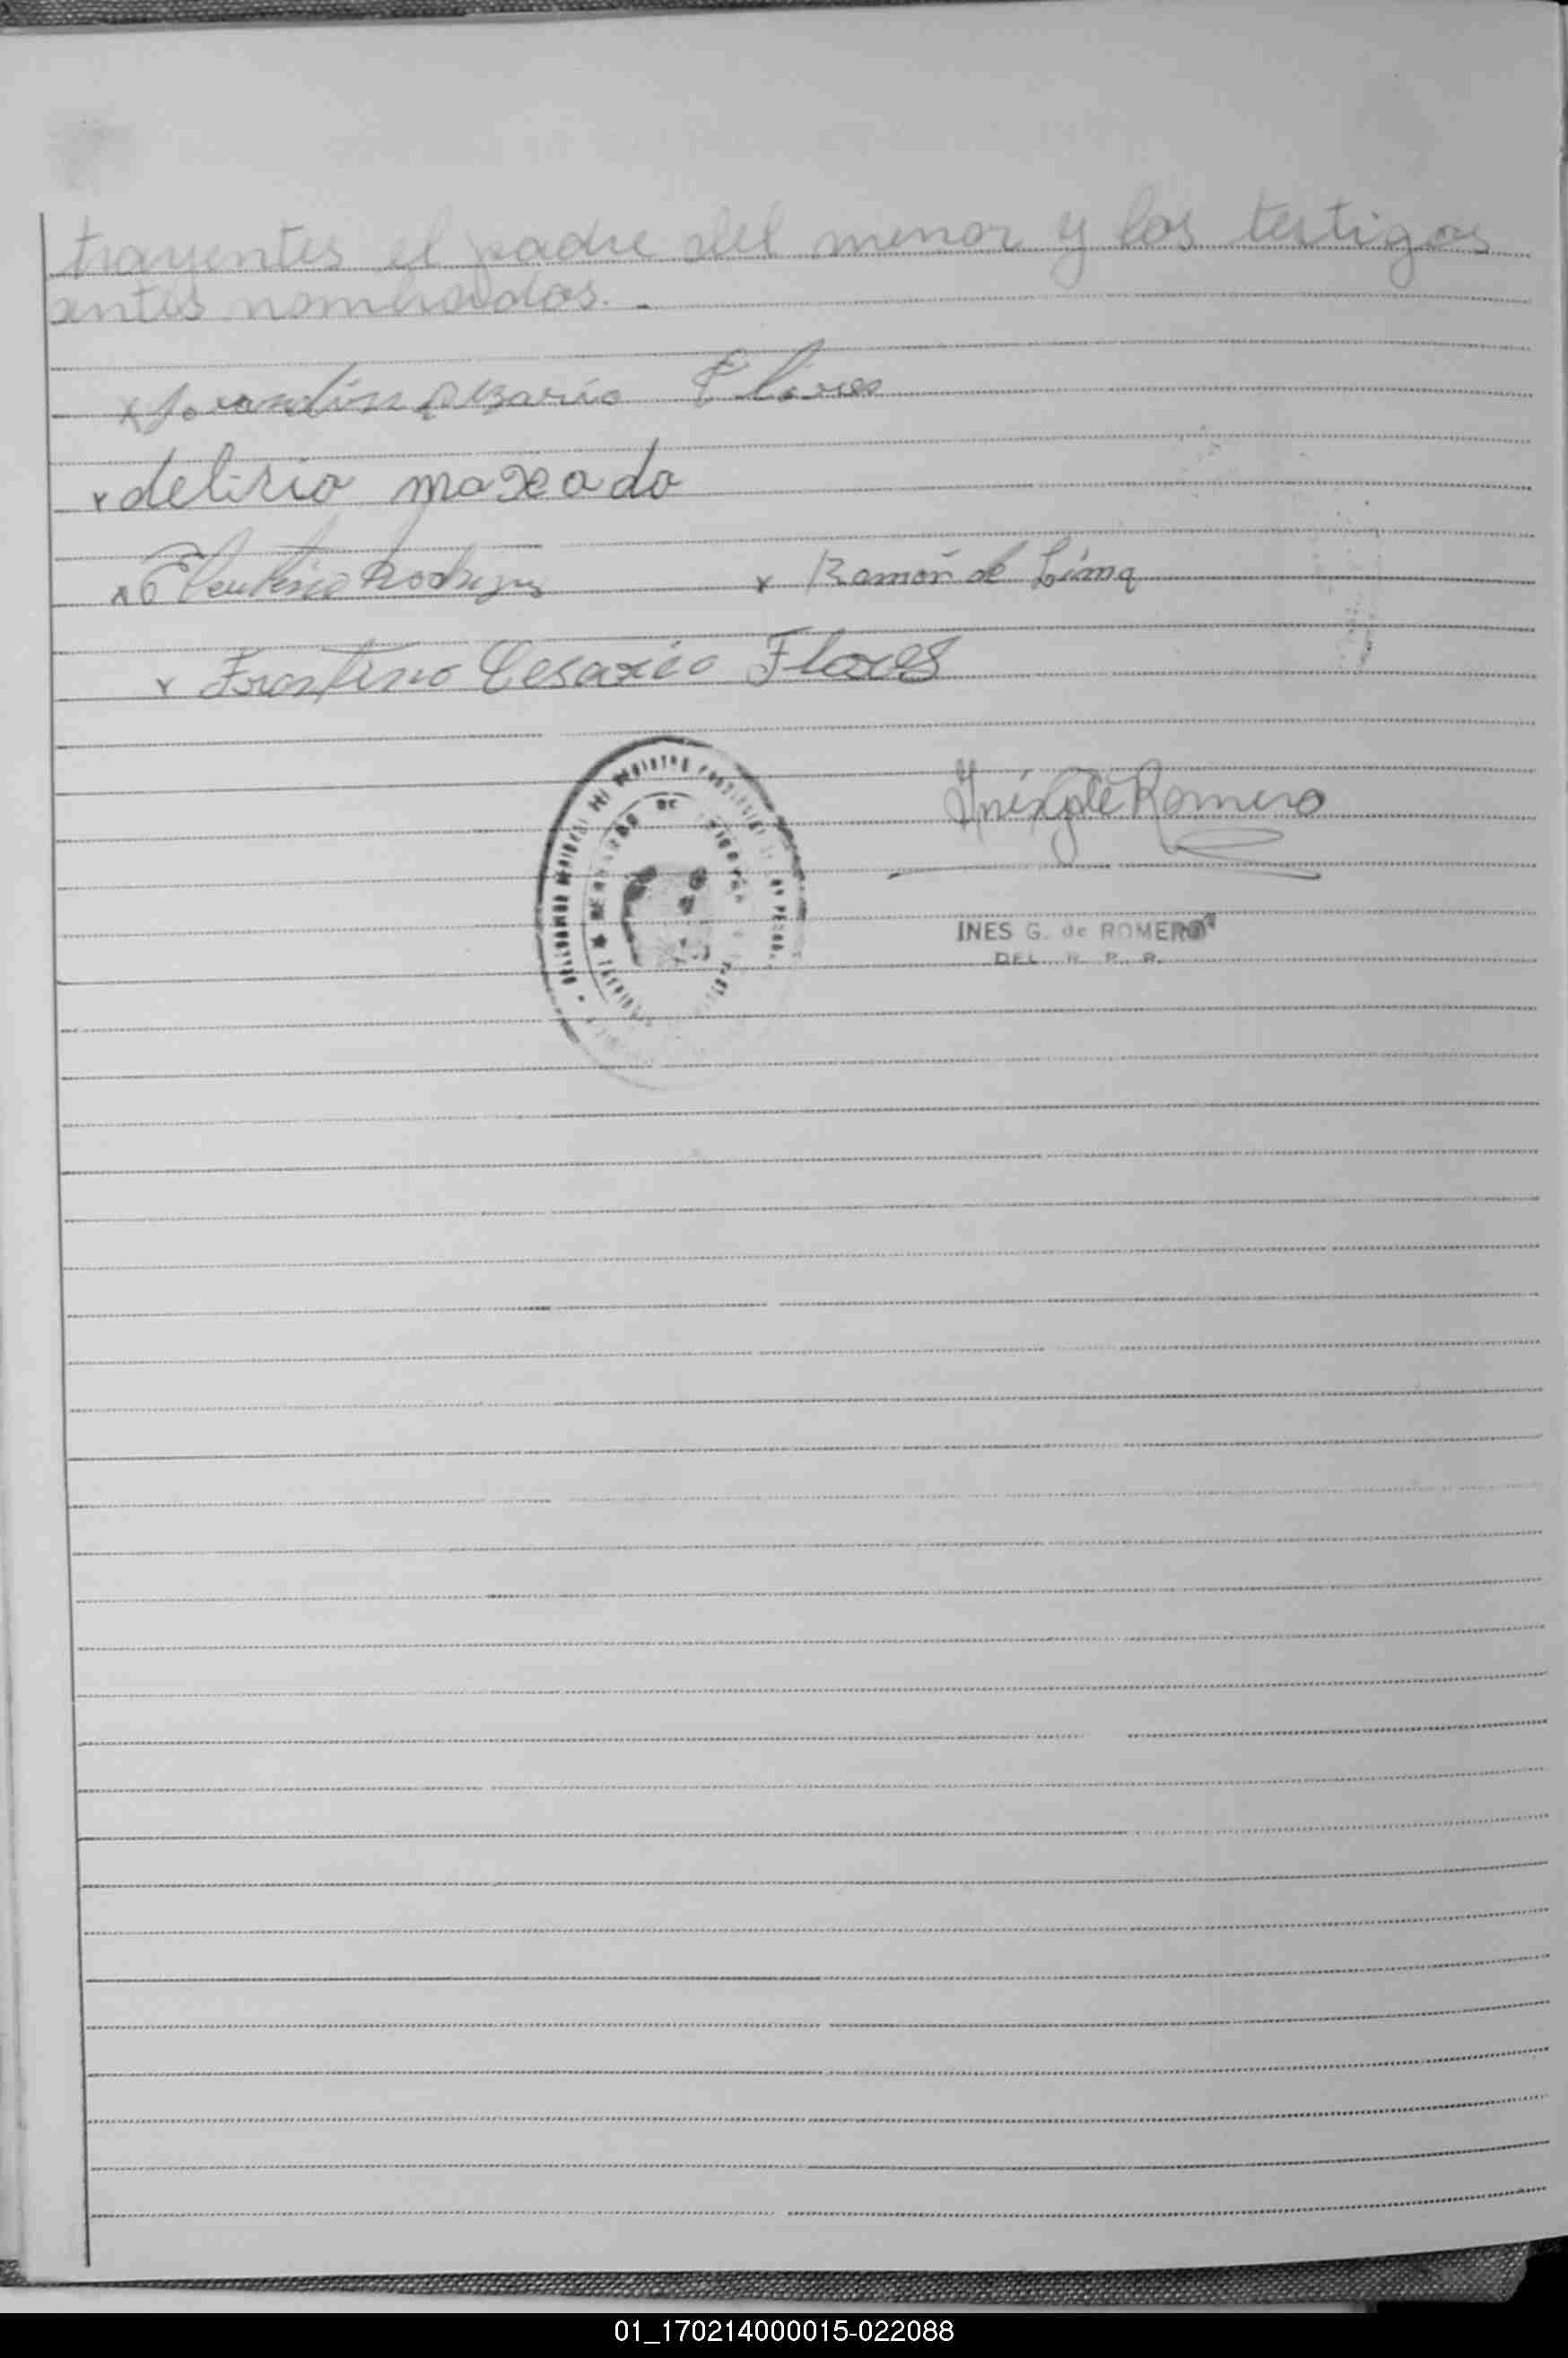 trayentes el padre del menor y los testigos
antes nombrados. -
x Cesario Flores
x delirio maxado
x Eleuterio Rodriguez x Ramón de Lima
x Frontino Cesario Flores
Inés G de Romero
DE
INES G. de ROMERO
DEL. R. P. P.
01_170214000015-022088